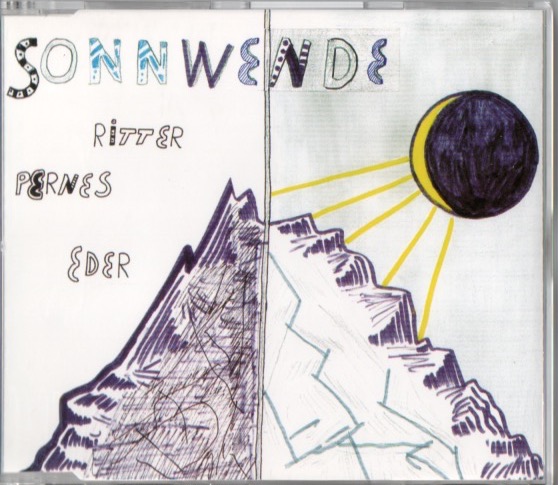 SONNWENDE
RITTER
PERNES
EDER